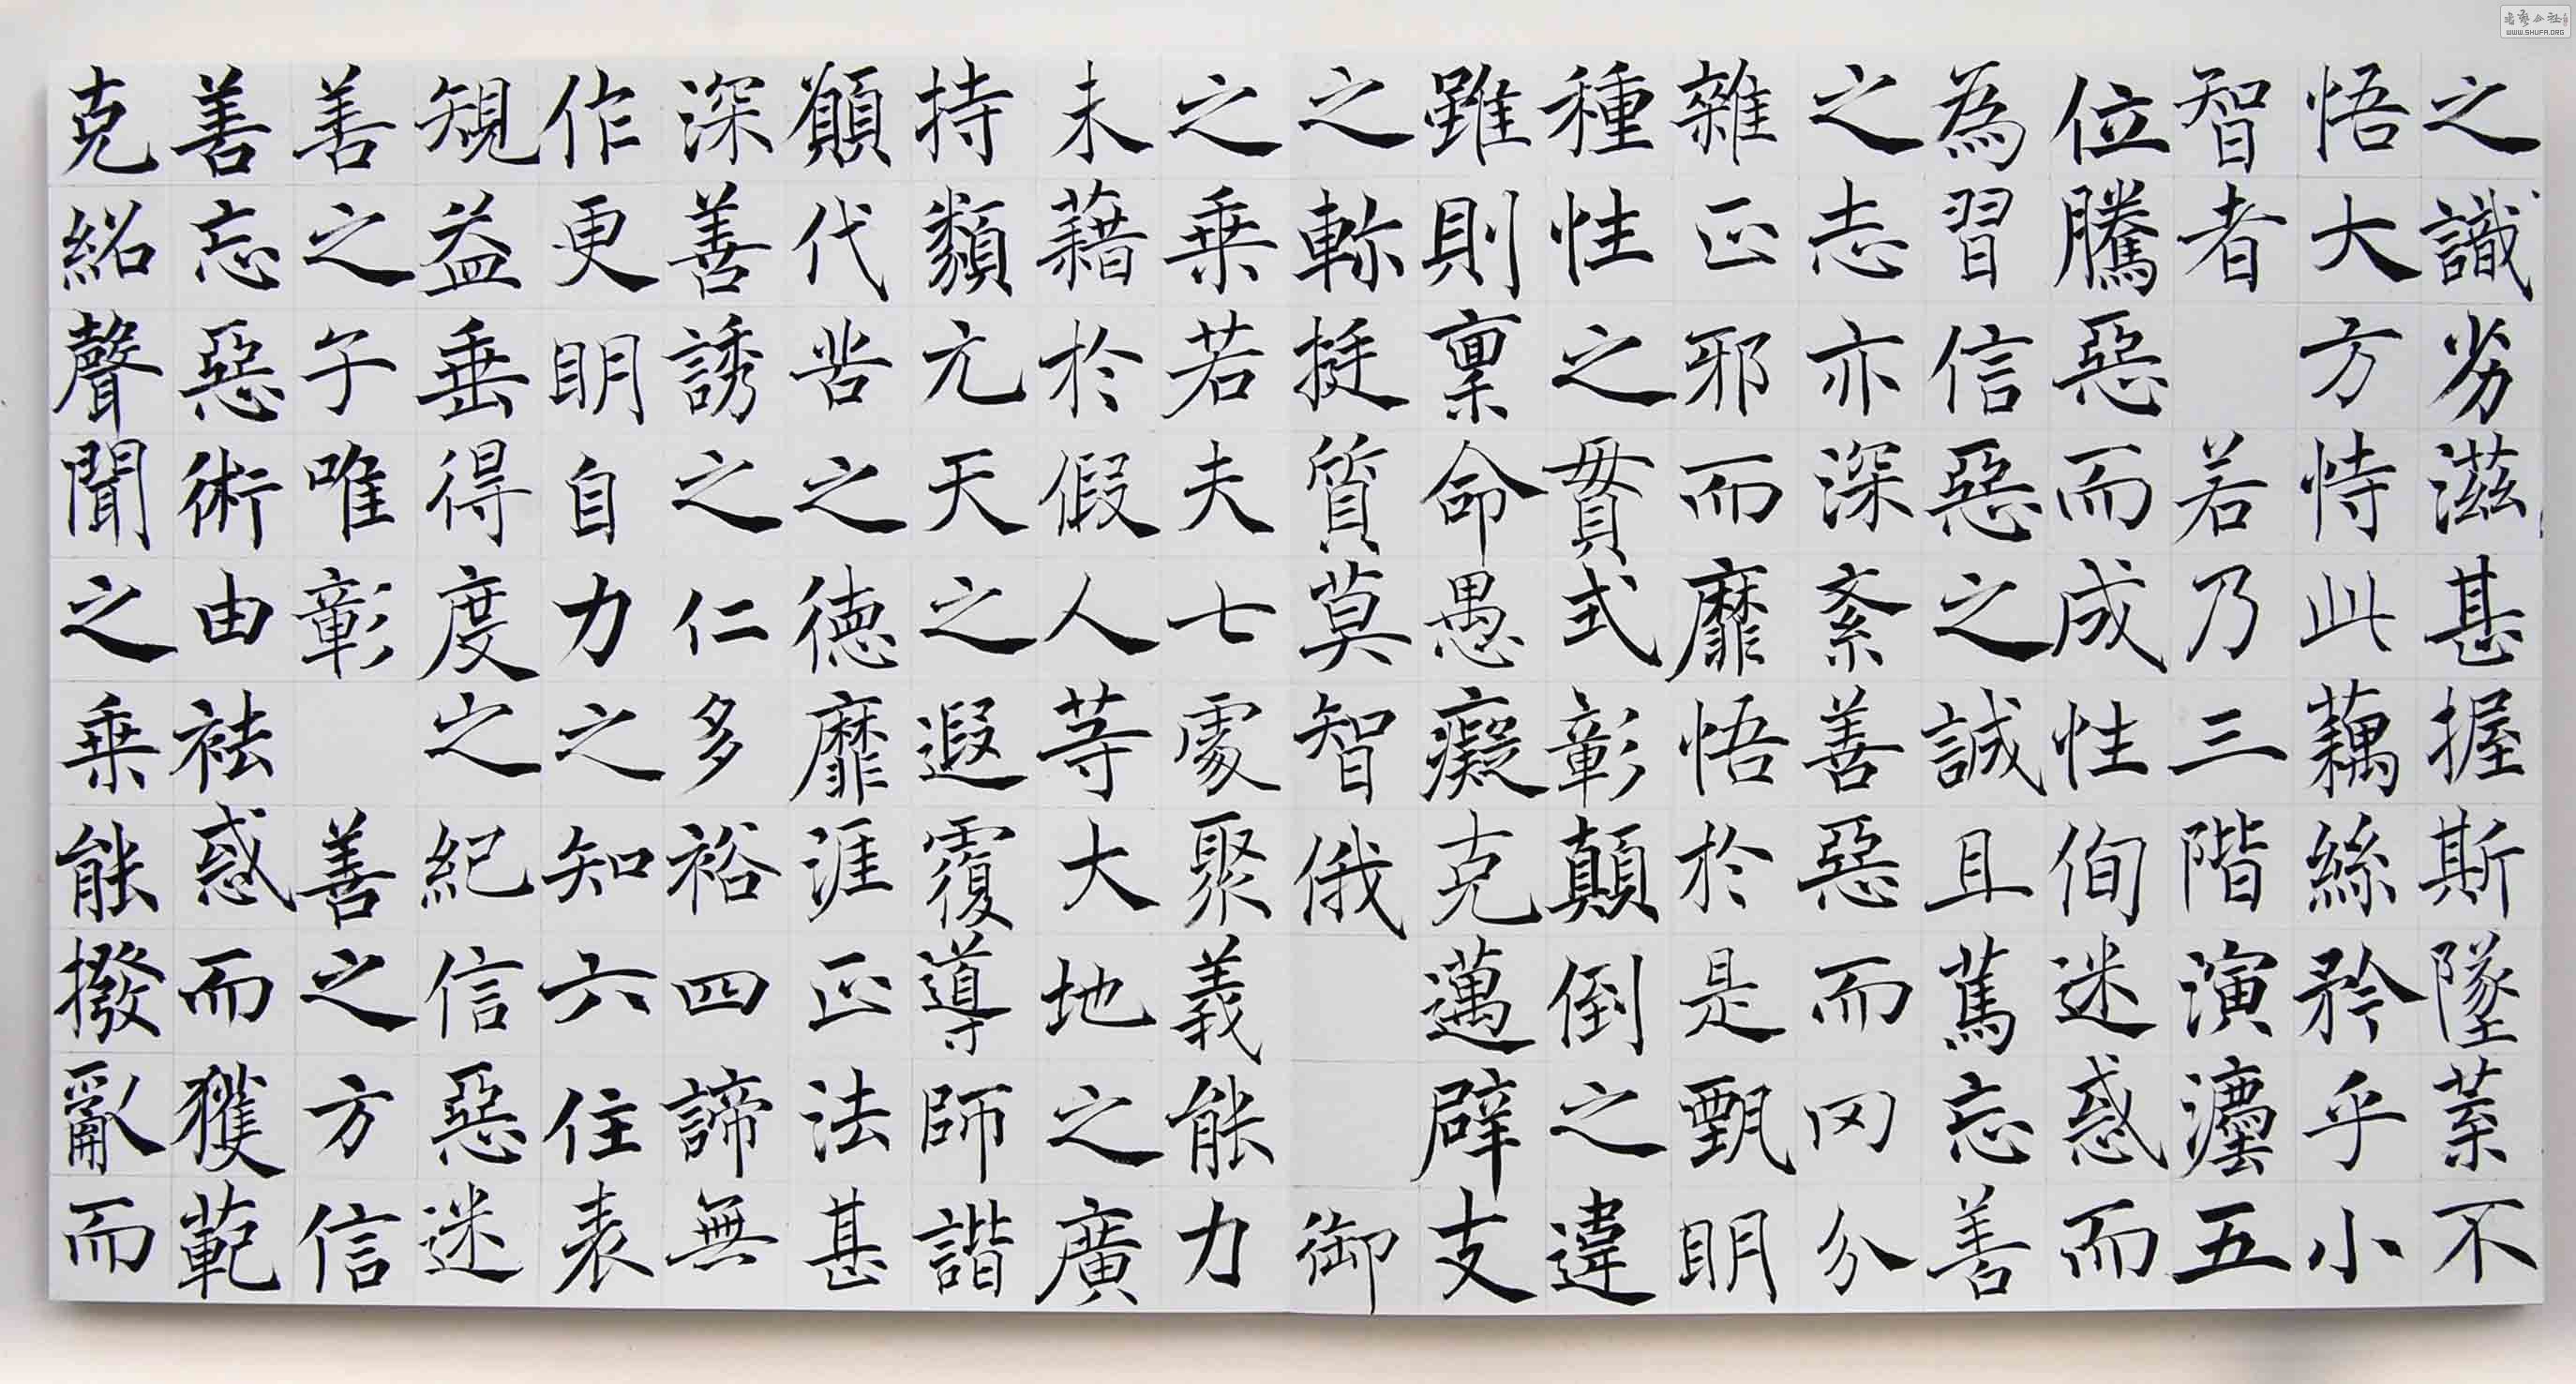 之識劣滋甚握斯墜不
悟大方恃此藕絲矜乎小
智者 若乃三階演灋五
位騰惡而成性徇迷惑而
為習信惡之誠且篤忘善
之志亦深紊善惡而冈分
雜正邪而靡悟於是甄明
種性之貫式彰顛倒之違
雖則禀命愚癡克邁辟支
之軫挺質莫智俄 御
之乘若夫士處聚義能力
未藉於假人等大地之廣
持類亢天之遐覆導師諧
願代苦之德靡涯正法甚
深善誘之仁多裕四諦無
作更明自力之知六住表
規益垂得度之紀信惡迷
善之子唯彰 善之方信
善忘惡術由祛惑而獲範
克紹聲聞之乘能撥亂而
书艺公社
WWW.SHUFA.ORG